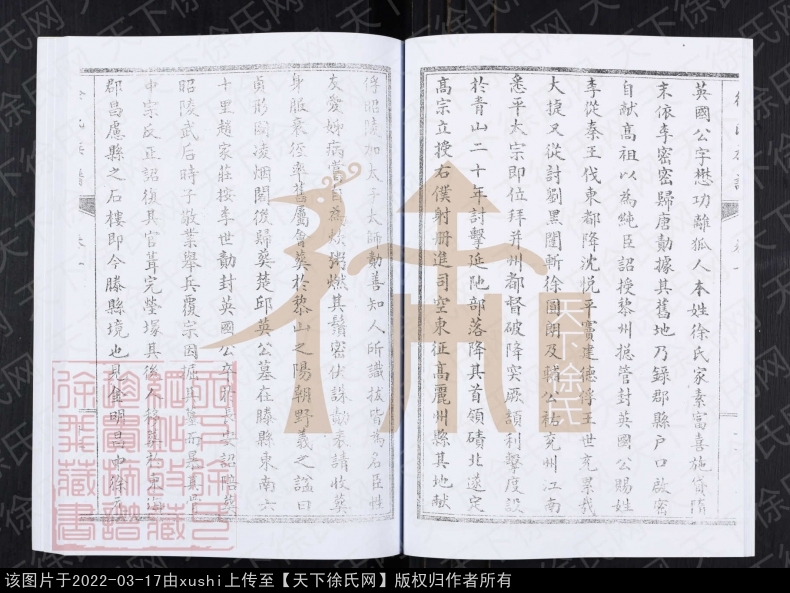 英國公字懋功離狐人本姓徐氏家素富喜施貸隋
末依李密密歸唐勣據其舊地乃錄郡縣戶口啟密
自献髙祖以為純臣詔授黎州揔管封英國公賜姓
李從秦王伐東都降沈悅平竇建德俘王世充累戰
大捷又從討劉黑闥斬徐圎朗及輔公祏兖州江南
悉平太宗即位拜并州都督破降突厥頡利擊度設
於青山二十年討擊延陁部落降其首領磧北遂定
髙宗立授右僕射册進司空東征髙麗州縣其地献
俘昭陵加太子太師勣善知人所識拔皆為名臣性
友愛姊病嘗自為粥燃其鬚密伏誅勣表請收葬
身服衰絰率舊屬會葬於黎山之陽朝野義之謚曰
貞形圖凌烟閣復歸葬楚邱英公墓在滕縣東南六
十里趙家荘按李世勣封英國公卒詔陪葬
昭陵武后時子敬業舉兵覆宗因掘其墓而暴其
中宗反正詔復其官葺完塋塚其後人移葬於東海
郡昌慮縣之石樓即今滕縣境也見
天下徐氏
天下徐氏网
该图片于2022-03-17由xushi上传至【天下徐氏网】版权归作者所有